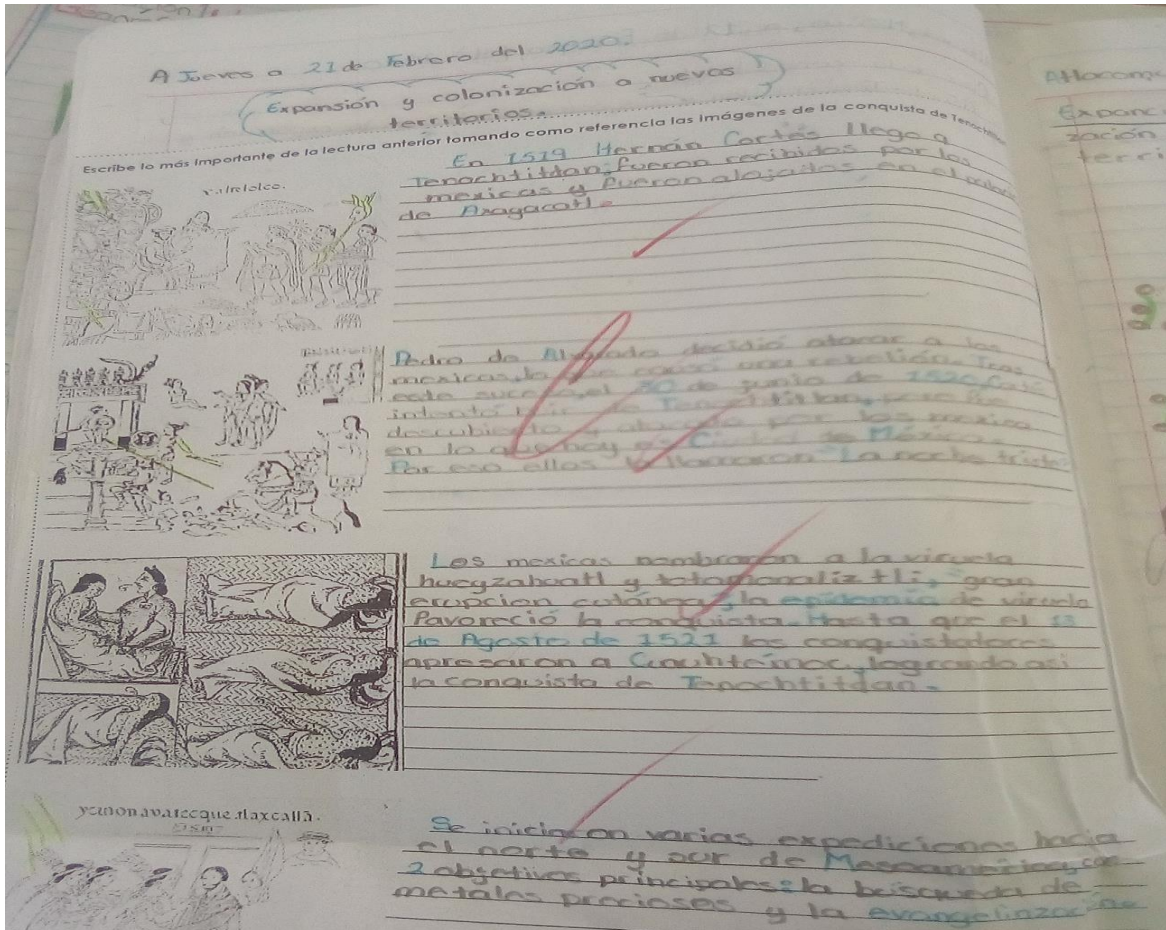 A Jueves a 21 de Febrero del 2020.
Expansión y colonización a nuevos
territorios.
Escribe lo más importante de la lectura anterior tomando como referencia las imágenes de la conquista de
En 1519 Hernán Cortés llego a
Tenochtitdan; fueron recibidos por los
mexicas y fueron alojados en el
de Axayacatl.
Pedro de Alvarado decidió atacar a los
mexicas, lo que causó una rebelión. Tras
este suceso, el 30 de junio de 1520
intentó
descubierto
en lo que hoy es
Por eso ellos llamaron "La noche triste"
Los mexicas nombraron a la viruela
hueyzahuatl y totomonaliztli, "gran
erupcion cutánea", la epidemia de viruela
favoreció la conquista. Hasta que el 13
de Agosto de 1521 los conquistadores
apresaron a Cuauhtémoc, logrando asi
la conquista de Tenochtitdan.
Se iniciaron varias expediciones hacia
el norte y sur de Mesoamérica, con
2 objetivos principales: la búsqueda de
metales preciosos y la
Expanc
zación
terri